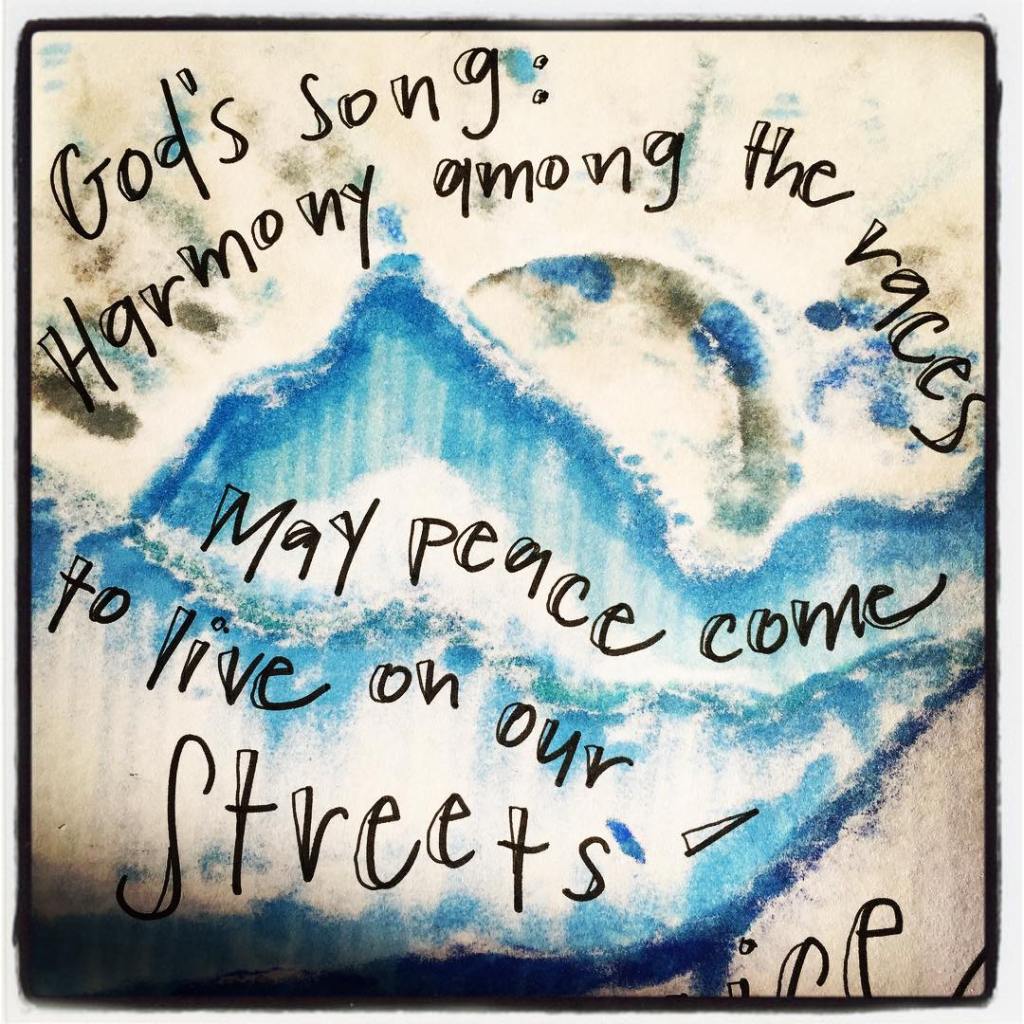 God's song:
Harmony among the races
May peace come
to live on our
streets –